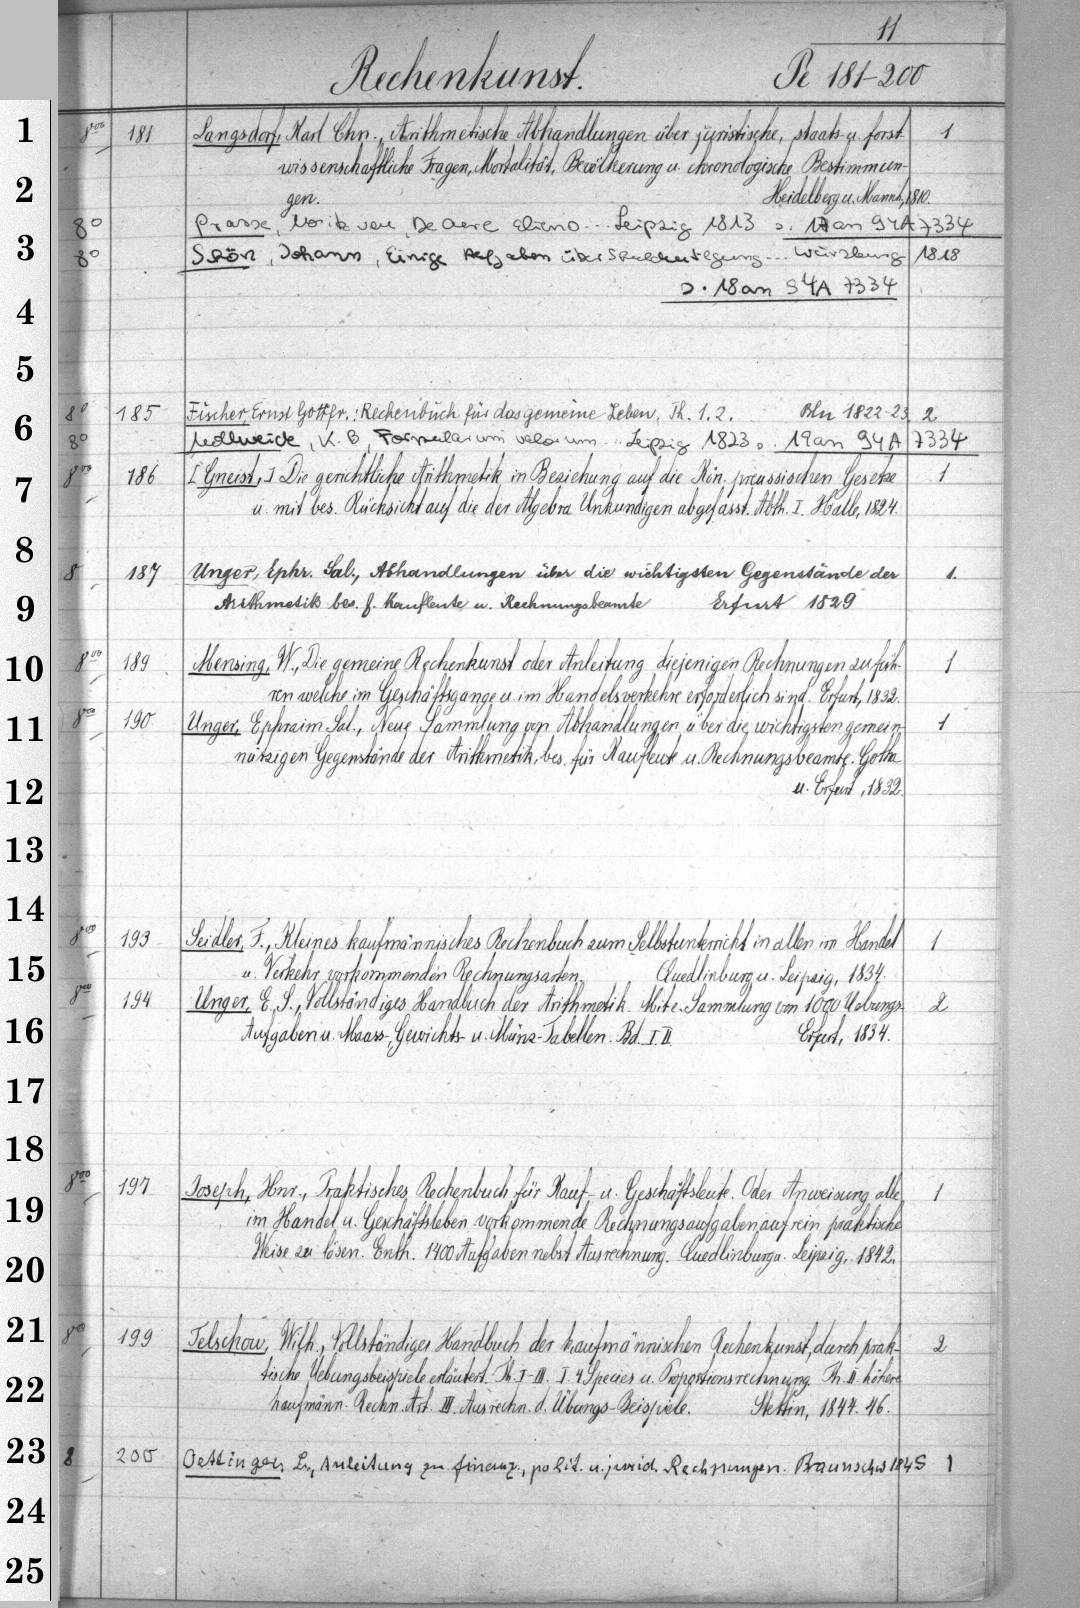 11
Rechenkunst. Pe 181-200
1 8vo 181 Langsdorf, Karl Chn., Arithmetische Abhandlungen über juristische, staats- u. forst- 1
wissenschaftliche Fragen, Mortalität, Bevölkerung u. chronologische Bestimmun-
2 gen. Heidelberg u. Mannh, 1810.
8° Prasse, Moriz von, De aere Leipzig 1813 s. 17 an 94A 7334
3 8° Schön, Johann, Einige Aufgaben über Schuldentilgung... Würzburg 1818
s. 18 an 94A 7334
4
5
6 8° 185 Fischer, Ernst Gottfr.: Rechenbuch für das gemeine Leben, Th. 1.2. Bln 1822-23 2
8° Mollweide, K. B, Formularum valorum... Leipzig 1823 s. 19 an 94A 7334
7 8vo 186 [Gneist,] Die gerichtliche Arithmetik in Beziehung auf die Kön. preussischen Gesetze 1
u. mit bes. Rücksicht auf die der Algebra Unkundigen abgefasst. Abth. I. Halle, 1824.
8
8 187 Unger, Ephr. Sal., Abhandlungen über die wichtigsten Gegenstände der 1.
9 Arithmetik bes. f. Kaufleute u. Rechnungsbeamte Erfurt 1829
10 8vo 189 Mensing, W., Die gemeine Rechenkunst oder Anleitung diejenigen Rechnungen zu füh- 1
ren welche im Geschäftsgange u. im Handelsverkehre erforderlich sind. Erfurt, 1832.
11 8vo 190 Unger, Ephraim Sal., Neue Sammlung von Abhandlungen über die wichtigsten gemein- 1
nützigen Gegenstände der Arithmetik, bes. für Kaufleute u. Rechnungsbeamte. Gotha
12 u. Erfurt, 1832.
13
14
8vo 193 Seidler, F., Kleines kaufmännisches Rechenbuch zum Selbstunterricht in allen im Handel 1
15 u. Verkehr vorkommenden Rechnungsarten. Quedlinburg u. Leipzig, 1834.
8vo 194 Unger, E. S., Vollständiges Handbuch der Arithmetik. Mit e. Sammlung von 1000 Uebungs- 2
16 Aufgaben u. Maass-, Gewichts- u. Münz-Tabellen. Bd. I. II Erfurt, 1834.
17
18
19 8vo 197 Joseph, Hnr., Praktisches Rechenbuch für Kauf- u. Geschäftsleute. Oder Anweisung alle 1
im Handel u. Geschäftsleben vorkommende Rechnungsaufgaben auf rein praktische
20 Weise zu lösen. Enth. 1400 Aufgaben nebst Ausrechnung. Quedlinburg u. Leipzig, 1842.
21 8vo 199 Telschow, Wilh., Vollständiges Handbuch der kaufmännischen Rechenkunst, durch prak- 2
tische Uebungsbeispiele erläutert. Th. I-III. I. 4 Species u. Proportionsrechnung Th. II. höhere
22 kaufmänn. Rechn. Art. III. Ausrechn. d. Übungs-Beispiele. Stettin, 1844. 46.
23 8 200 Oettinger, L., Anleitung zu finanz., polit. u. jurid. Rechnungen. Braunschw 1845 1
24
25